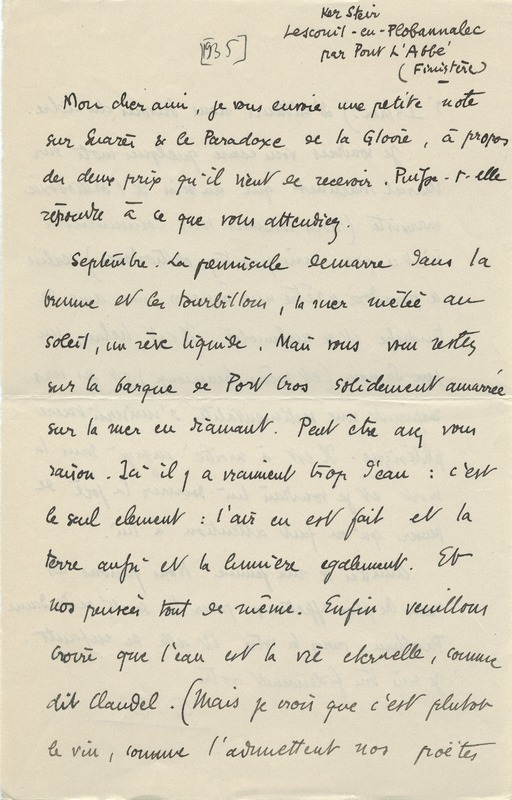 Ker Steir
Lescouil-en-Plobannalec
par Pont L'Abbé
(Finistère)
[1935]
Mon cher ami, je vous envoie une petite note
sur Suarès & le Paradoxe de la Gloire, à propos
des deux prix qu'il vient de recevoir. Puisse-t-elle
répondre à ce que vous attendiez.
Septembre. La péninsule démarre dans la
brume et les tourbillons, la mer mêlée au
soleil, un rêve liquide. Mais vous vous restez
sur la barque de Port Cros solidement amarrée
sur la mer en diamant. Peut être avez vous
raison. Ici il y a vraiment trop d'eau : c'est
le seul element : l'air en est fait et la
terre aussi et la lumière egalement. Et
nos pensées tout de même. Enfin veuillons
croire que l'eau est la vie eternelle, comme
dit Claudel. (Mais je crois que c'est plutot
le vin, comme l'admettent nos poëtes